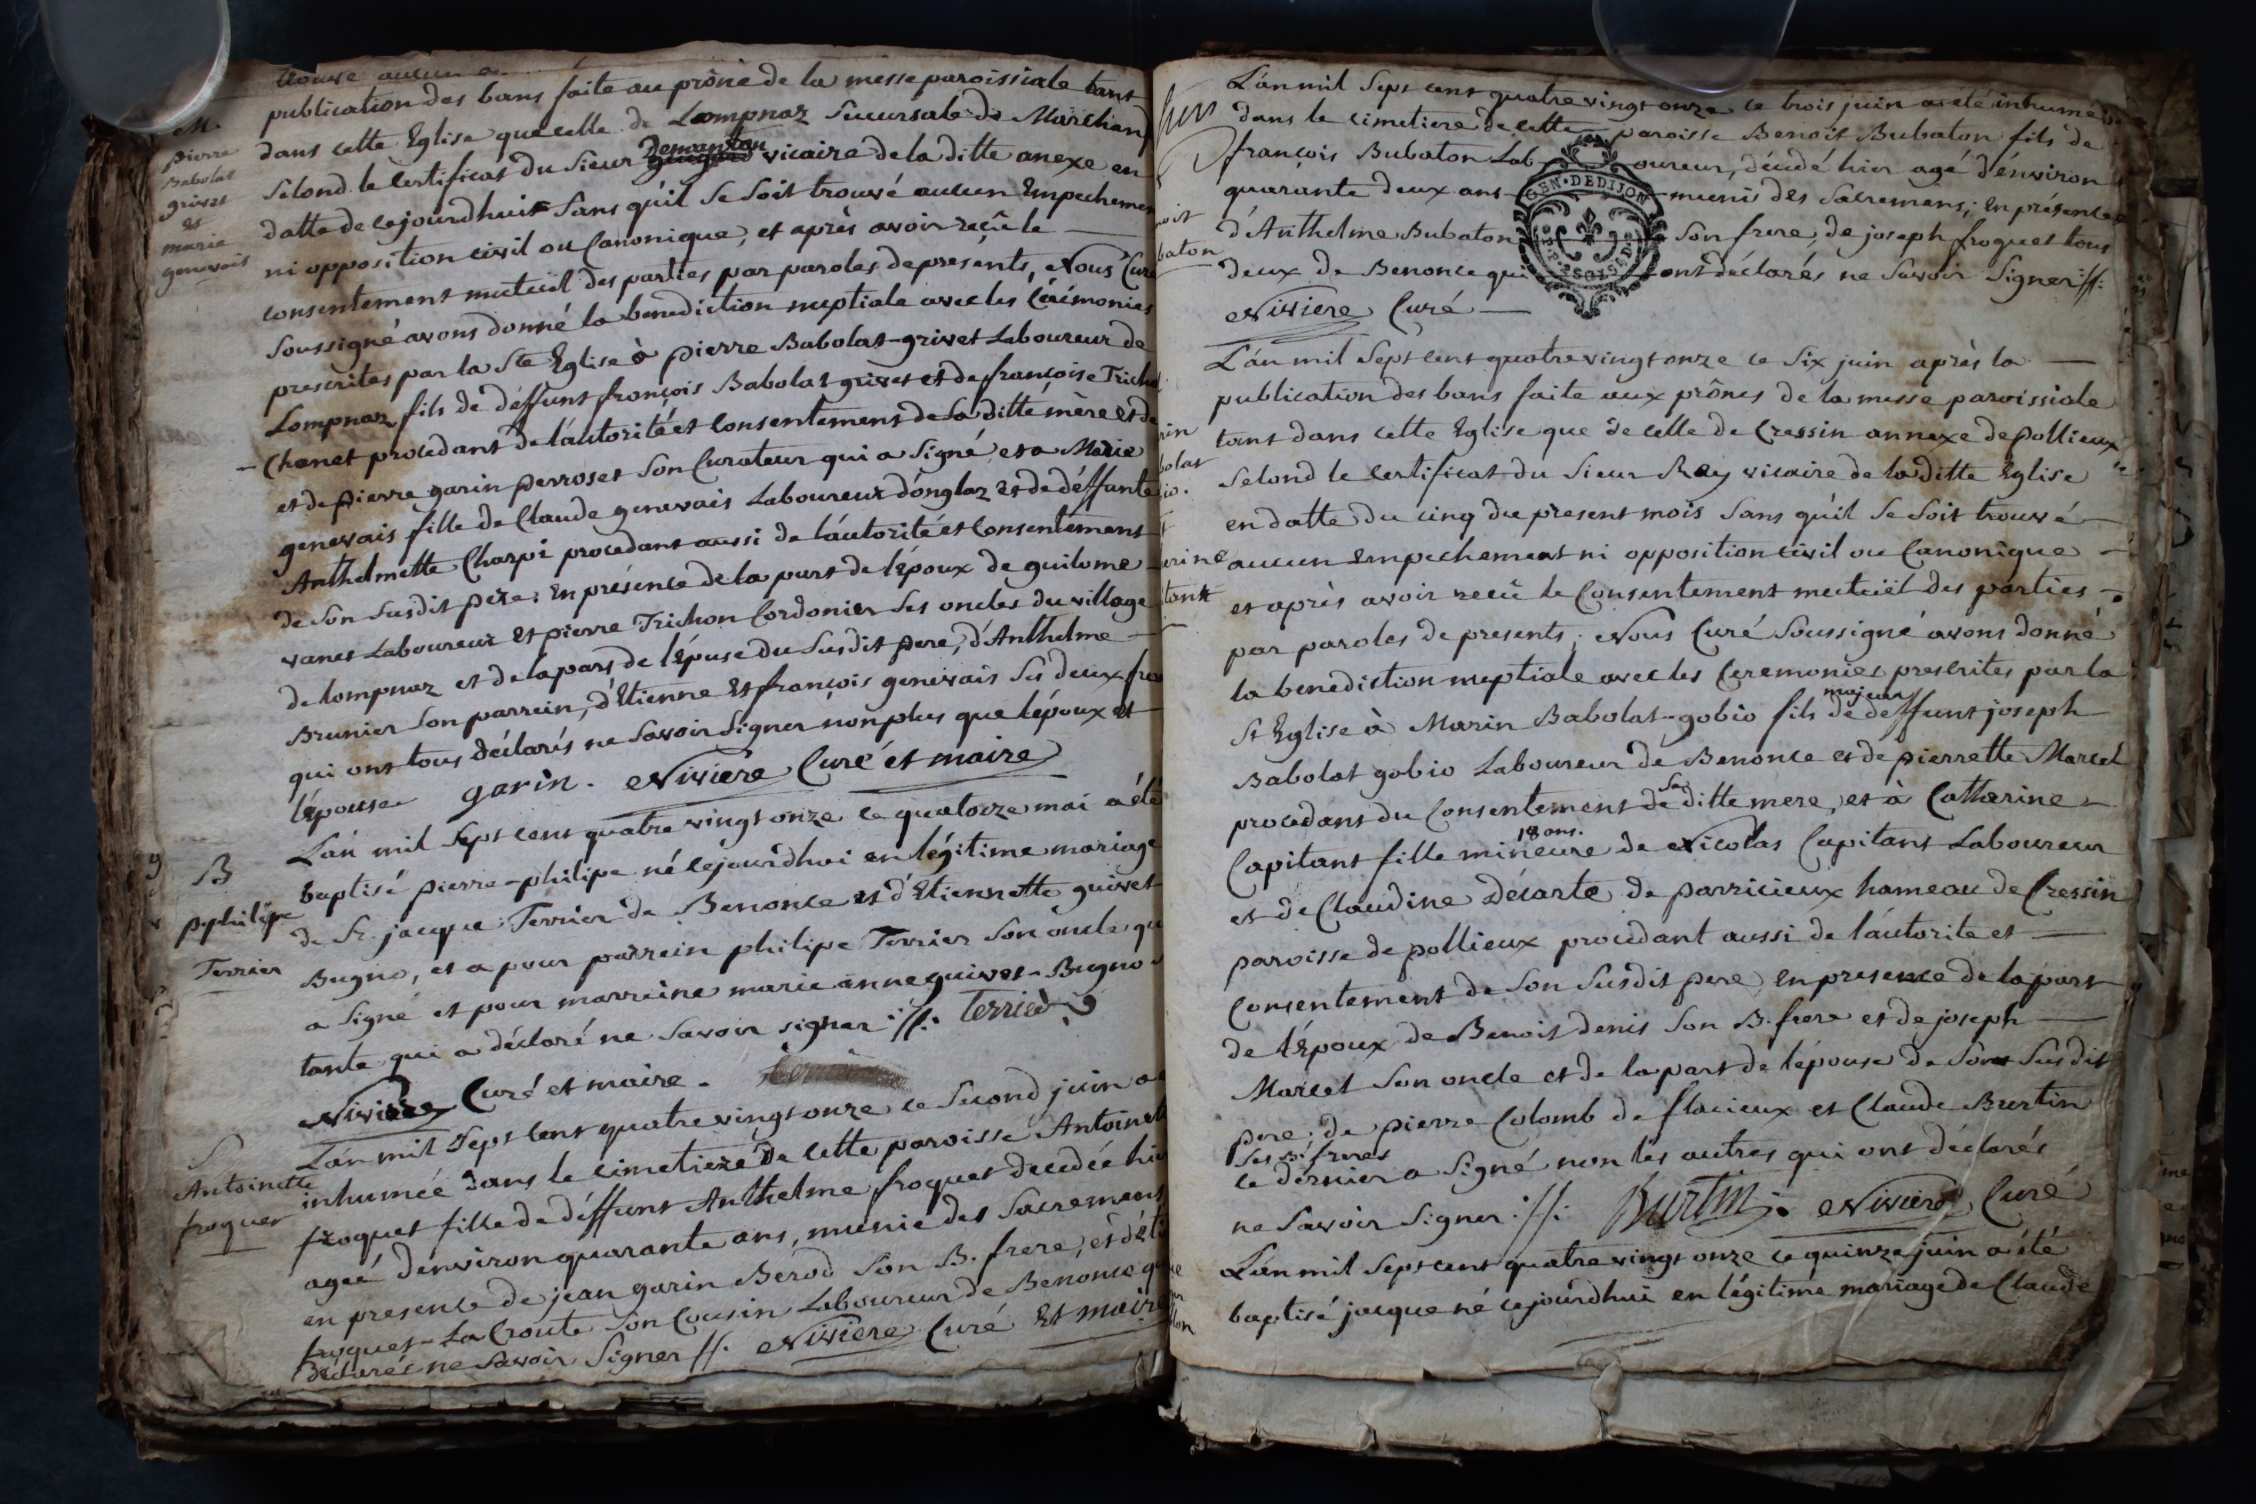 trouvé aucun
publication des bans faite au prône de la messe paroissiale tant
M.
pierre
Babolat
grivet
et
marie
genevais
dans cette Eglise que celle de Lompnaz Succursale de Marchand
Sélond le Certificat du Sieur Demontan vicaire de la ditte anexe en
datte de cejourdhuit Sans qu'il Se Soit trouvé aucun Empechement
ni opposition civil ou Canonique, et après avoir reçû le —
consentement mutuël des parties par paroles de présents, Nous Curé
Soussigné avons donné la benediction nuptiale avec les Cérémonies
prescrites par la Ste Eglise à pierre Babolat-grivet Laboureur de
Lompnaz fils de déffunt françois Babolat grivet et de françoise Trichon
— Chanet procedant de l'áutorité et Consentement de Sa ditte mère et de
et de pierre garin perroset Son Curateur qui a Signé, et a Marie
genevais fille de Claude genevais Laboureur d'onglaz et de déffunte
Anthelmette Charpi procedant aussi de l'áutorité et Consentement
de Son Susdit pere ; En présence de la part de l'Époux de guilome
vanet Laboureur Et pierre Trichon Cordonier Ses oncles du village
de lompnaz et de la part de l'Épuse du Susdit pere, d'Anthelme —
Brunier Son parrein, d'Etienne Et françois genevais Ses deux freres
qui ont tous déclarés ne Savoir Signer non plus que l'époux et
l'épouse garin. Niviere Curé et maire
B
pphilipe
Terrier
L'an mil Sept cent quatre vingt onze le quatorze mai a été
baptisé pierre-philipe né cejourdhui en légitime mariage
de Sr. jacque Terrier de Benonce et d'Etiennette guivet
Bugno, et a pour parrein philipe Terrier Son oncle qui
a Signé et pour marreine marie anne guivet-Bugno Sa
tante qui a déclaré ne Savoir signer ://: terrier
Niviere Curé et maire.
S
Antoinette
froquet
L'an mil Sept Cent quatre vingt onze le Second juin a été
inhumée dans le cimetiere de cette paroisse Antoinette
froquet fille de déffunt Anthelme froquet decedée hier
ageé d'environ quarante ans, munie des Sacremens
en presence de jean garin Bérod Son B. frere, et d'Eti
froquet-La Croute Son Cousin Laboureur de Benonce qui
déclarés ne Savoir Signer //. Niviere Curé Et maire
L'an mil Sept cent quatre vingt onze le trois juin a été inhumé
dans le cimetiere de cette paroisse Benoit Bubaton fils de
françois Bubaton Laboureur, décédé hier agé d'environ
quarante deux ans munis des Sacremens ; En présence
d'Anthelme Bubaton Son frere, de joseph froquet tous
deux de Benonce qui ont déclarés ne Savoir Signer ://:
GEN · DE DIJON
Niviere Curé —
L'an mil Sept Cent quatre vingt onze le Six juin après la —
publication des bans faite aux prônes de la messe paroissiale
tant dans cette Eglise que de celle de Cressin annexe de pollieux
Selond le Certificat du Sieur Rey vicaire de la ditte Eglise
en datte du cinq du present mois Sans qu'il Se Soit trouvé —
aucun Empechement ni opposition civil ou Canonique —
et après avoir recû le Consentement mutuël des parties —
par paroles de presents ; Nous Curé Soussigné avons donné
la benediction nuptiale avec les Ceremonies prescrites par la
majeur
St Eglise à Marin Babolat-gobio fils de deffunt joseph
Babolat gobio Laboureur de Benonce et de pierrette Marcel
procedant du Consentement de Sa ditte mere, et à Catherine —
18 ans.
Capitant fille mineure de Nicolas Capitant Laboureur
et de Claudine Décarte de parricieux hameau de Cressin
paroisse de pollieux procedant aussi de l'áutorite et —
Consentement de Son Susdit pere, En presence de la part
de l'Époux de Benoit denis Son B. frere et de joseph —
Marcel Son oncle et de la part de l'épouse de Son Susdit
pere ; de pierre Colomb de flacieux et Claude Burtin
Ses B. freres
ce dérnier a Signé non les autres qui ont déclarés
ne Savoir Signer ://: Burtin. Niviere Curé
L'an mil Sept cent quatre vingt onze le quinze juin a été
baptisé jacque né cejourdhui en légitime mariage de Claude